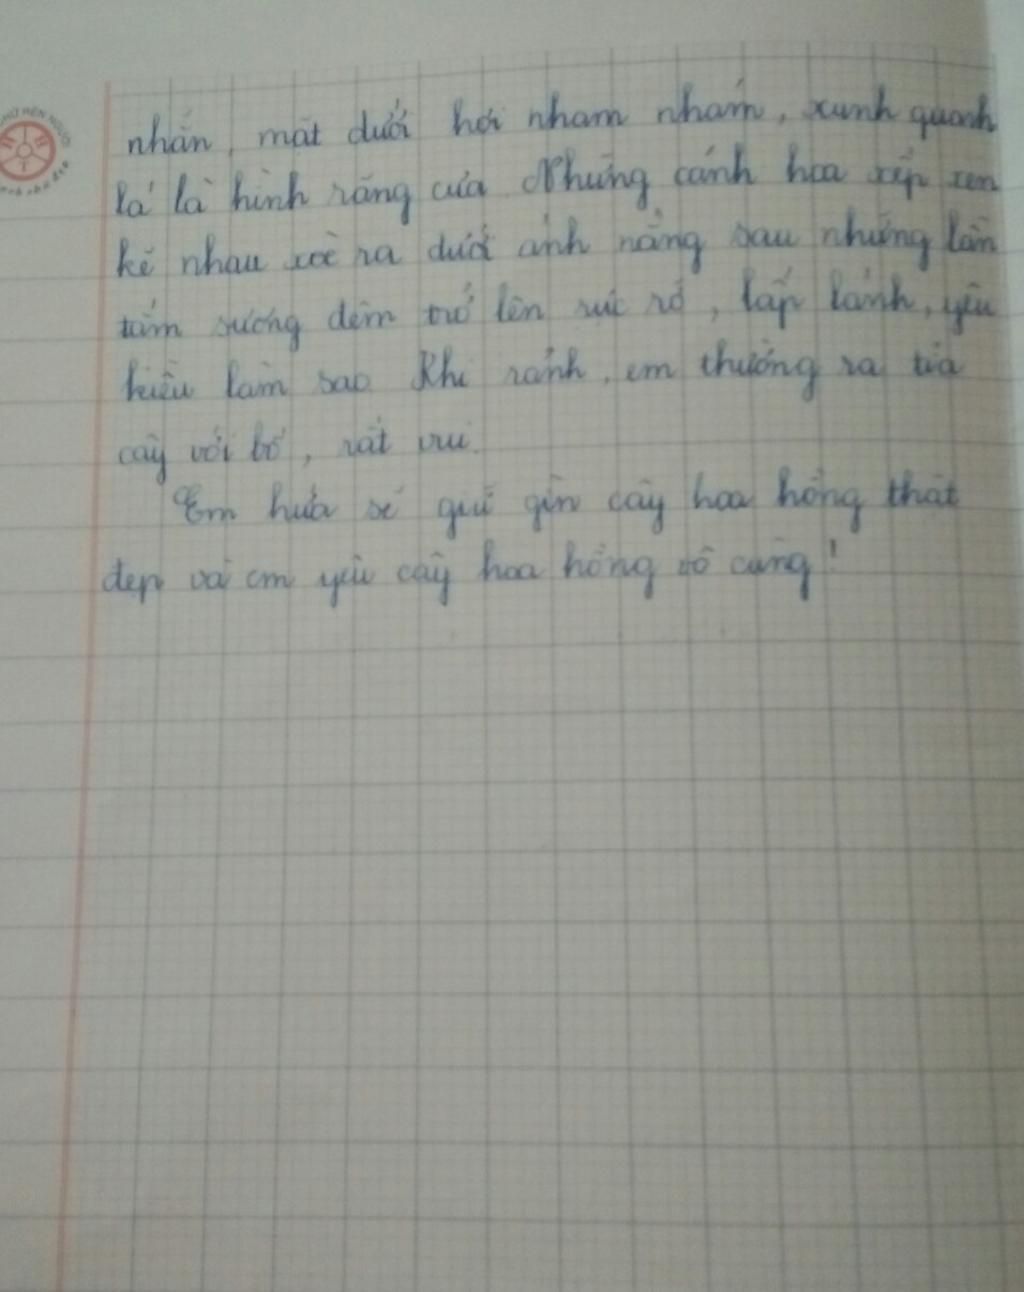 nhẵn, mặt dưới hơi nham nhám, xunh quanh
lá là hình răng cưa. Những cánh hoa xếp xen
kẽ nhau xoè ra dưới ánh nắng sau những lần
tắm sương đêm trở lên rực rỡ, lấp lánh, yêu
kiều làm sao. Khi rảnh, em thường ra tỉa
cây với bố, rất vui.
Em hứa sẽ giữ gìn cây hoa hồng thật
đẹp và em yêu cây hoa hồng vô cùng!